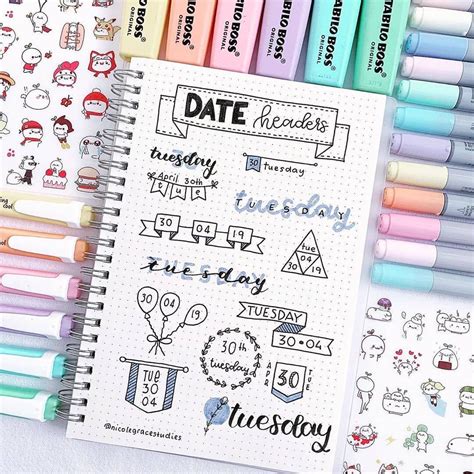 STABILO BOSS
ORIGINAL
STABILO BOSS
ORIGINAL
STABILO BOSS
ORIGINAL
STABILO BOSS
ORIGINAL
DATE headers
tuesday
30 tuesday
April 30th
tue
tuesday
TUESDAY
30 04 19
TUE
30 04 19
tuesday
TUESDAY
30 04 19
TUESDAY
30•04
30th
tuesday
APR
30
TUE
30
04
tuesday
@nicolegracestudies